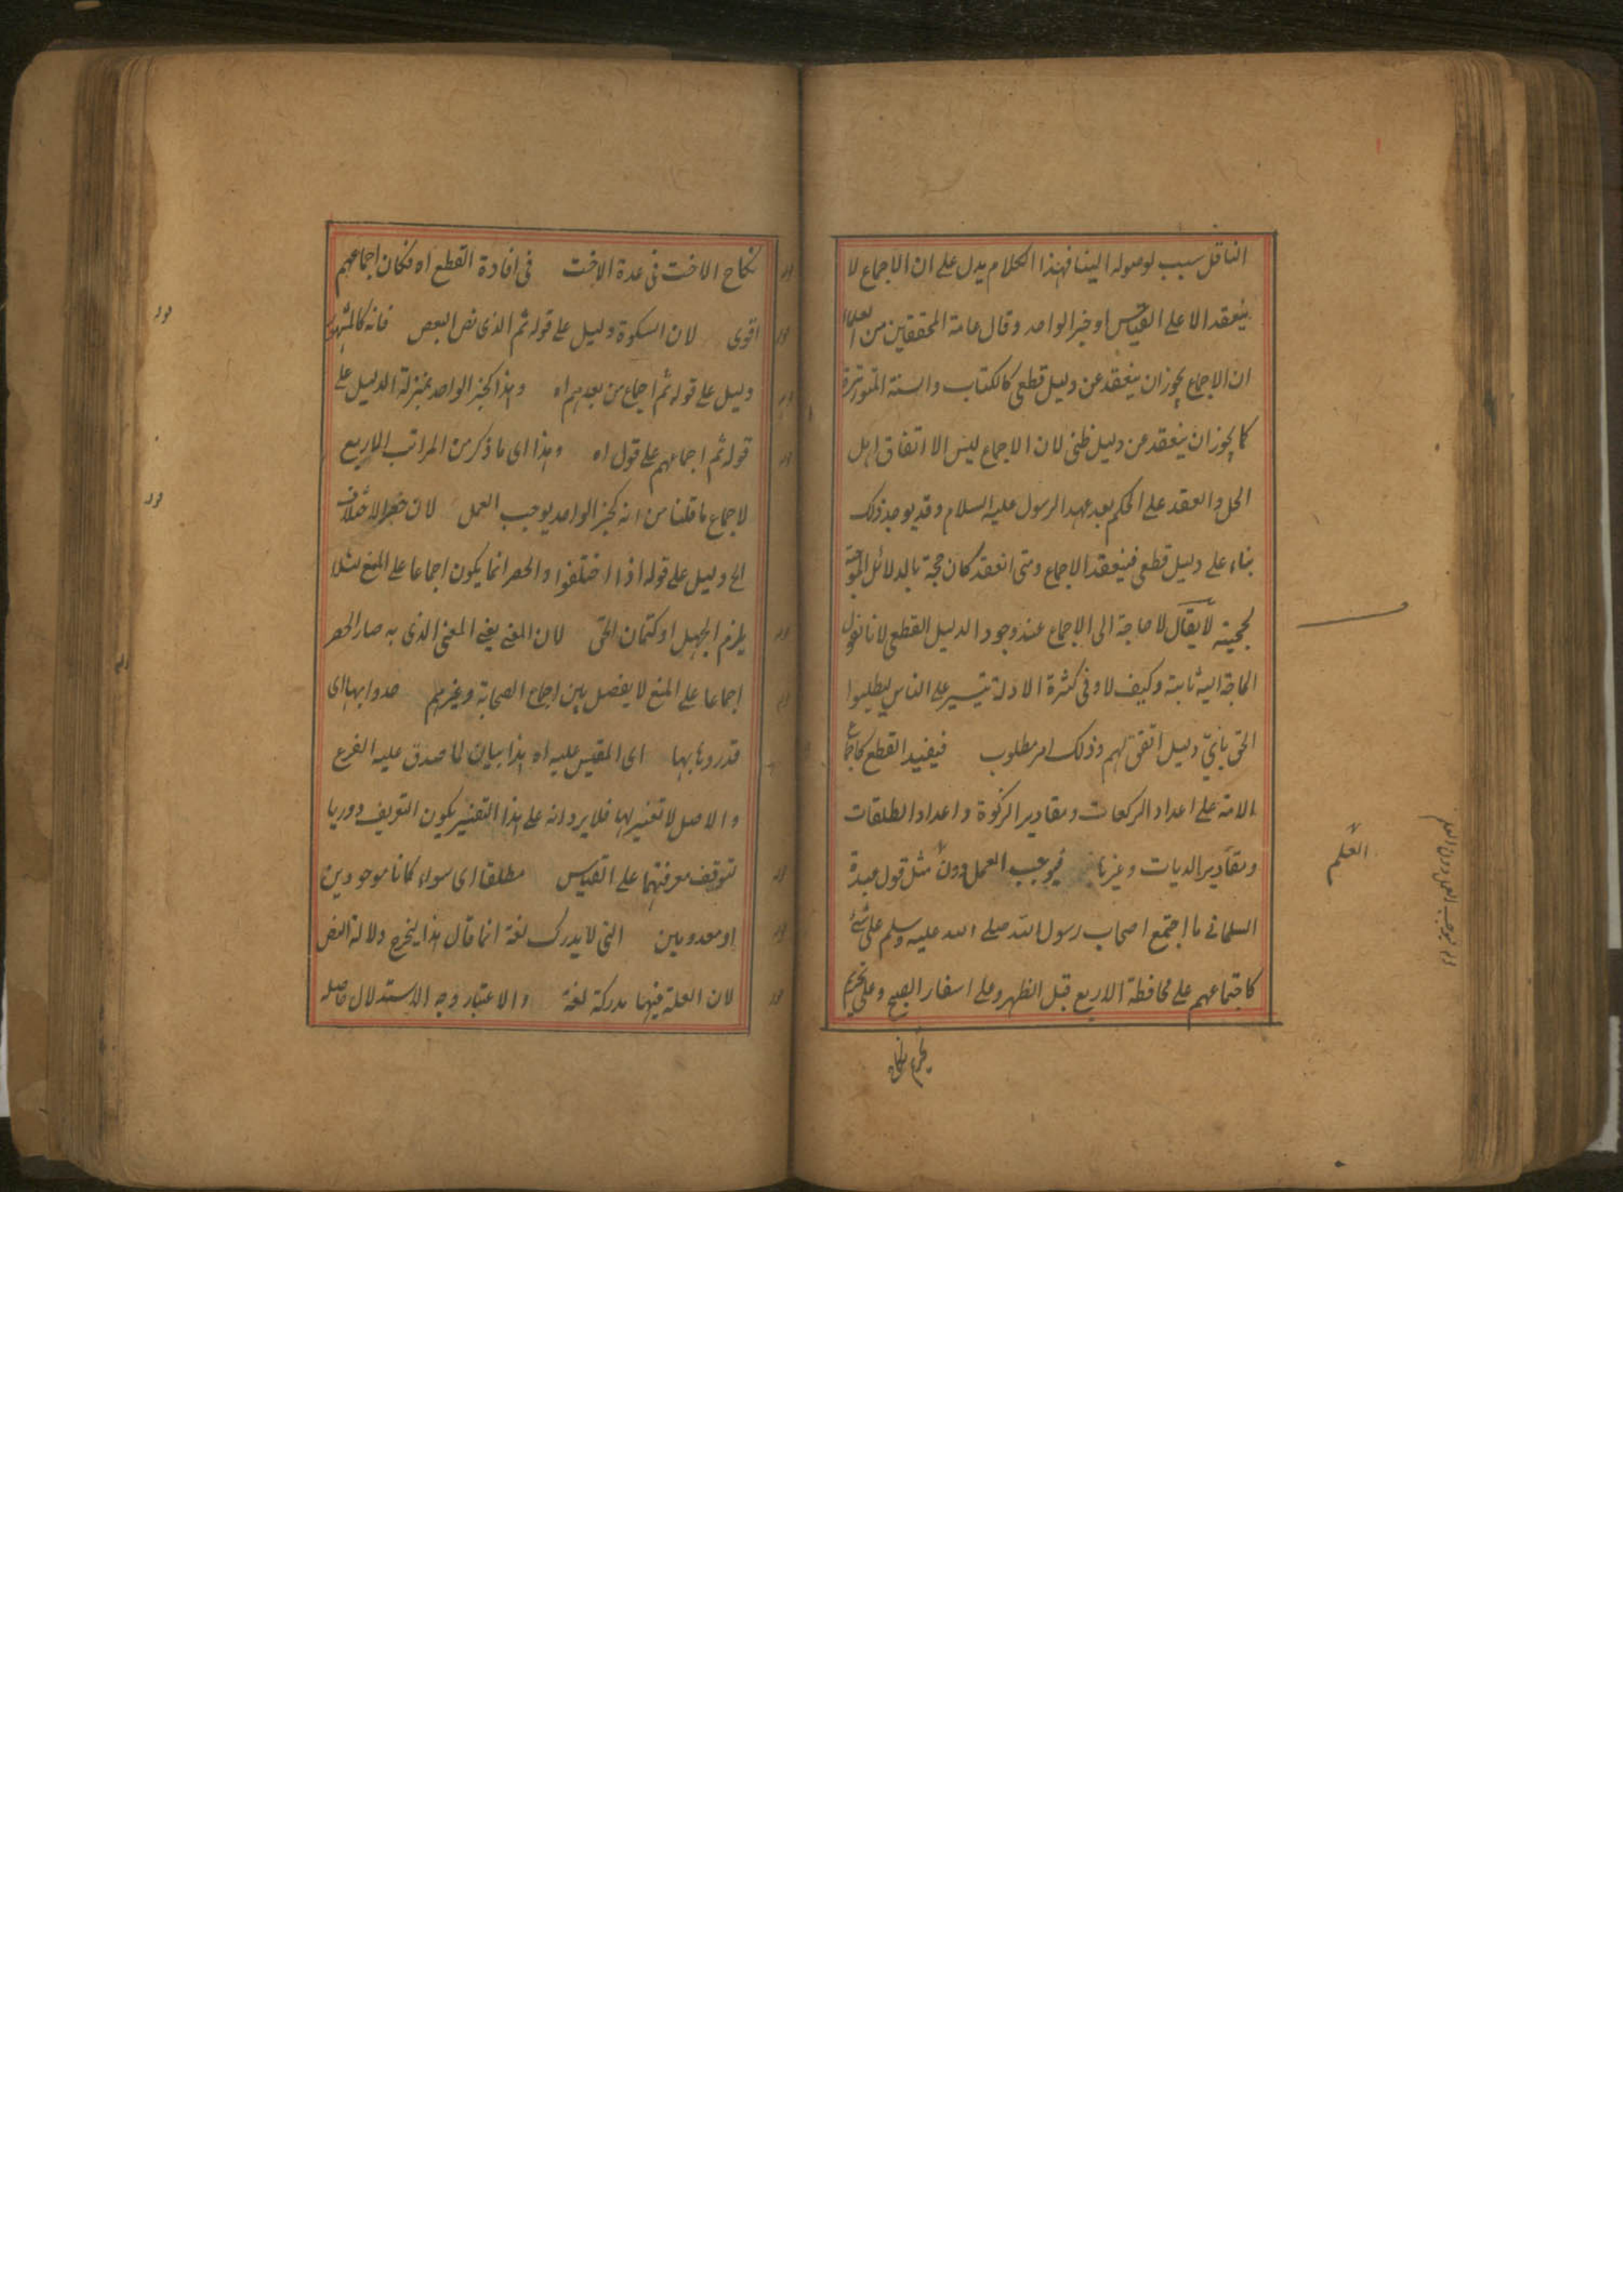 الناقل سبب لوصوله الينا فهذا الكلام يدل على ان الاجماع لا
ينعقد الا على القياس او خبر الواحد وقال عامة المحققين من العلماء
ان الاجماع يجوز ان ينعقد عن دليل قطعى كالكتاب والسنة المتواترة
كما يجوز ان ينعقد عن دليل ظنى لان الاجماع ليس الا اتفاق اهل
الحل والعقد على الحكم بعد عهد الرسول عليه السلام وقد يوجد ذلك
بناء على دليل قطعى فينعقد الاجماع ومتى انعقد كان حجة بالدلائل الموجبة
لحجيته لا يقال لا حاجة الى الاجماع عند وجود الدليل القطعى لانا نقول
الحاجة اليه ثابتة وكيف لا وفى كثرة الادلة تيسير على الناس ليطلبوا
الحق باىّ دليل اتفق لهم وذلك امر مطلوب فيفيد القطع كاجماع
الامة على اعداد الركعات ومقادير الزكوة واعداد الطلقات
ومقادير الديات وغيرها فيوجب العمل دون مثل قول عبيدة
السلمانى ما اجتمع اصحاب رسول الله صلى الله عليه وسلم على شئ
كاجتماعهم على محافظة الاربع قبل الظهر وعلى اسفار الصبح وعلى تحريم
العلم
نكاح الاخت فى عدة الاخت فى افادة القطع اه فكان اجماعهم
اقوى لان السكوة دليل على قوله ثم الذى نص البعض فانه كالمشهور
دليل على قوله ثم اجماع من بعدهم اه وهذا كخبر الواحد بمنزلة الدليل على
قوله ثم اجماعهم على قول اه وهذا اى ما ذكر من المراتب الاربع
لاجماع ما قلنا من انه كخبر الواحد يوجب العمل لان حصر الاختلاف
الخ دليل على قوله اذا اختلفوا والحصر انما يكون اجماعا على المنع لئلا
يلزم الجهل او كتمان الحق لان المعنى يعنى المعنى الذى به صار الحصر
اجماعا على المنع لا يفصل بين اجماع الصحابة وغيرهم حدوا بها اى
قدروها بها اى المقيس عليه اه هذا بيان لما صدق عليه الفرع
والاصل لا تفسير لهما فلا يرد انه على هذا التفسير يكون التعريف دوريا
لتوقف معرفتهما على القياس مطلقا اى سواء كانا موجودين
او معدومين التى لا يدرك لغة انما قال هذا ليخرج دلالة النص
لان العلة فيها مدركة لغة والاعتبار وجه الاستدلال حاصله